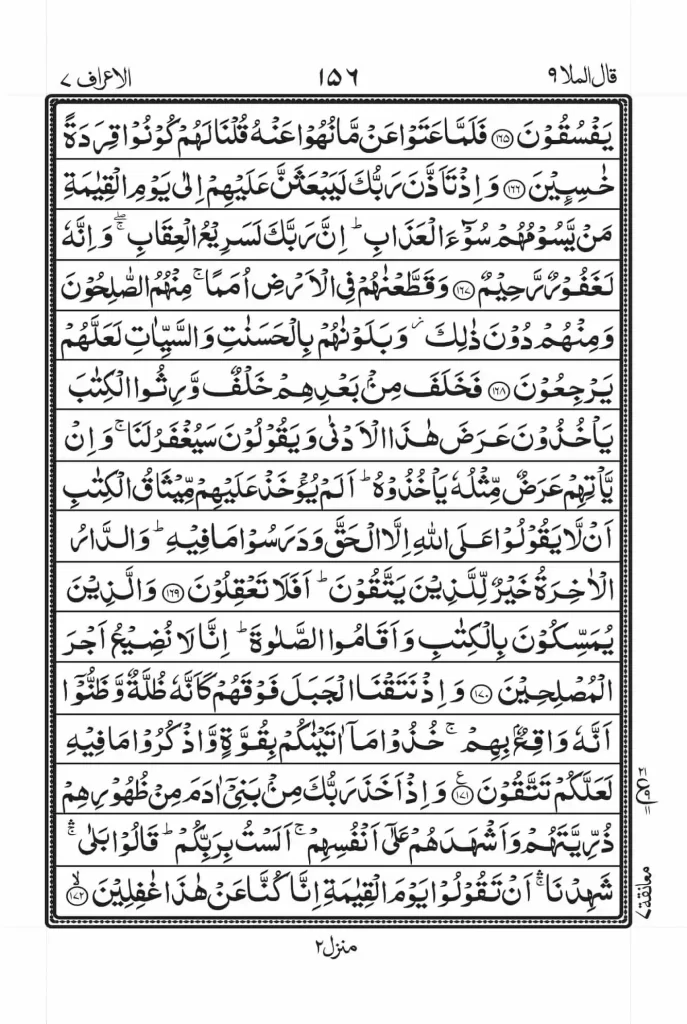 قال الملا ۹ ۱۵۶ الاعراف ۷
يَفْسُقُوْنَ ﴿۱۶۵﴾ فَلَمَّا عَتَوْا عَنْ مَّا نُهُوْا عَنْهُ قُلْنَا لَهُمْ كُوْنُوْا قِرَدَةً
خٰسِـِٕيْنَ ﴿۱۶۶﴾ وَاِذْ تَاَذَّنَ رَبُّكَ لَيَبْعَثَنَّ عَلَيْهِمْ اِلٰى يَوْمِ الْقِيٰمَةِ
مَنْ يَّسُوْمُهُمْ سُوْٓءَ الْعَذَابِ ؕ اِنَّ رَبَّكَ لَسَرِيْعُ الْعِقَابِ ۖۚ وَاِنَّهٗ
لَغَفُوْرٌ رَّحِيْمٌ ﴿۱۶۷﴾ وَقَطَّعْنٰهُمْ فِى الْاَرْضِ اُمَمًا ۚ مِنْهُمُ الصّٰلِحُوْنَ
وَمِنْهُمْ دُوْنَ ذٰلِكَ ؗ وَبَلَوْنٰهُمْ بِالْحَسَنٰتِ وَالسَّيِّاٰتِ لَعَلَّهُمْ
يَرْجِعُوْنَ ﴿۱۶۸﴾ فَخَلَفَ مِنْۢ بَعْدِهِمْ خَلْفٌ وَّرِثُوا الْكِتٰبَ
يَاْخُذُوْنَ عَرَضَ هٰذَا الْاَدْنٰى وَيَقُوْلُوْنَ سَيُغْفَرُ لَنَا ۚ وَاِنْ
يَّاْتِهِمْ عَرَضٌ مِّثْلُهٗ يَاْخُذُوْهُ ؕ اَلَمْ يُؤْخَذْ عَلَيْهِمْ مِّيْثَاقُ الْكِتٰبِ
اَنْ لَّا يَقُوْلُوْا عَلَى اللّٰهِ اِلَّا الْحَقَّ وَدَرَسُوْا مَا فِيْهِ ؕ وَالدَّارُ
الْاٰخِرَةُ خَيْرٌ لِّلَّذِيْنَ يَتَّقُوْنَ ؕ اَفَلَا تَعْقِلُوْنَ ﴿۱۶۹﴾ وَالَّذِيْنَ
يُمَسِّكُوْنَ بِالْكِتٰبِ وَاَقَامُوا الصَّلٰوةَ ؕ اِنَّا لَا نُضِيْعُ اَجْرَ
الْمُصْلِحِيْنَ ﴿۱۷۰﴾ وَاِذْ نَتَقْنَا الْجَبَلَ فَوْقَهُمْ كَاَنَّهٗ ظُلَّةٌ وَّظَنُّوْٓا
اَنَّهٗ وَاقِعٌۢ بِهِمْ ۚ خُذُوْا مَاۤ اٰتَيْنٰكُمْ بِقُوَّةٍ وَّاذْكُرُوْا مَا فِيْهِ
لَعَلَّكُمْ تَتَّقُوْنَ ﴿۱۷۱﴾ ع وَاِذْ اَخَذَ رَبُّكَ مِنْۢ بَنِىْۤ اٰدَمَ مِنْ ظُهُوْرِهِمْ
ذُرِّيَّتَهُمْ وَاَشْهَدَهُمْ عَلٰٓى اَنْفُسِهِمْ ۚ اَلَسْتُ بِرَبِّكُمْ ؕ قَالُوْا بَلٰى ۛۚ
شَهِدْنَا ۛۚ اَنْ تَقُوْلُوْا يَوْمَ الْقِيٰمَةِ اِنَّا كُنَّا عَنْ هٰذَا غٰفِلِيْنَ ﴿۱۷۲﴾ ۙ
معانقة ۷
منزل ۲